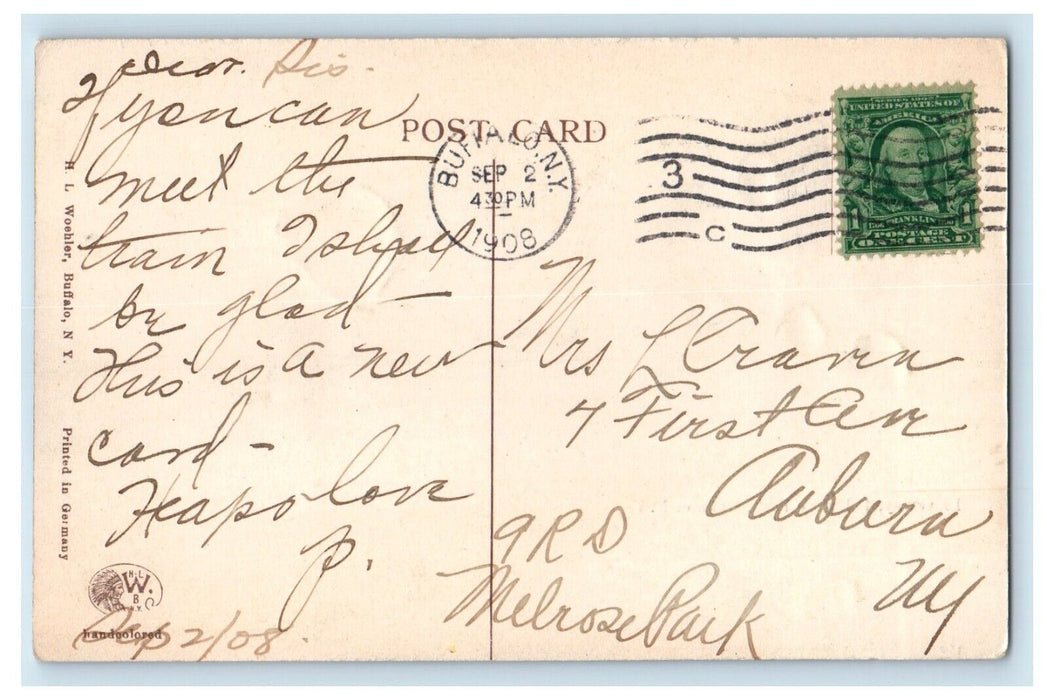 Dear. Sis.
If you can
meet the
train I shall
be glad –
This is a new
card –
Heaps love
P.
Sep 2/08.
POST CARD
BUFFALO, N.Y.
SEP 2
4 30 PM
1908
3
C
SERIES 1902
UNITED STATES OF
AMERICA
FRANKLIN
POSTAGE
ONE CENT
Mrs L Craven
4 First Av
Auburn
NY
9 R D
Melrose Park
H. L. Woehler, Buffalo, N. Y.
Printed in Germany
H.L.
W.
B
N.Y.
handcolored